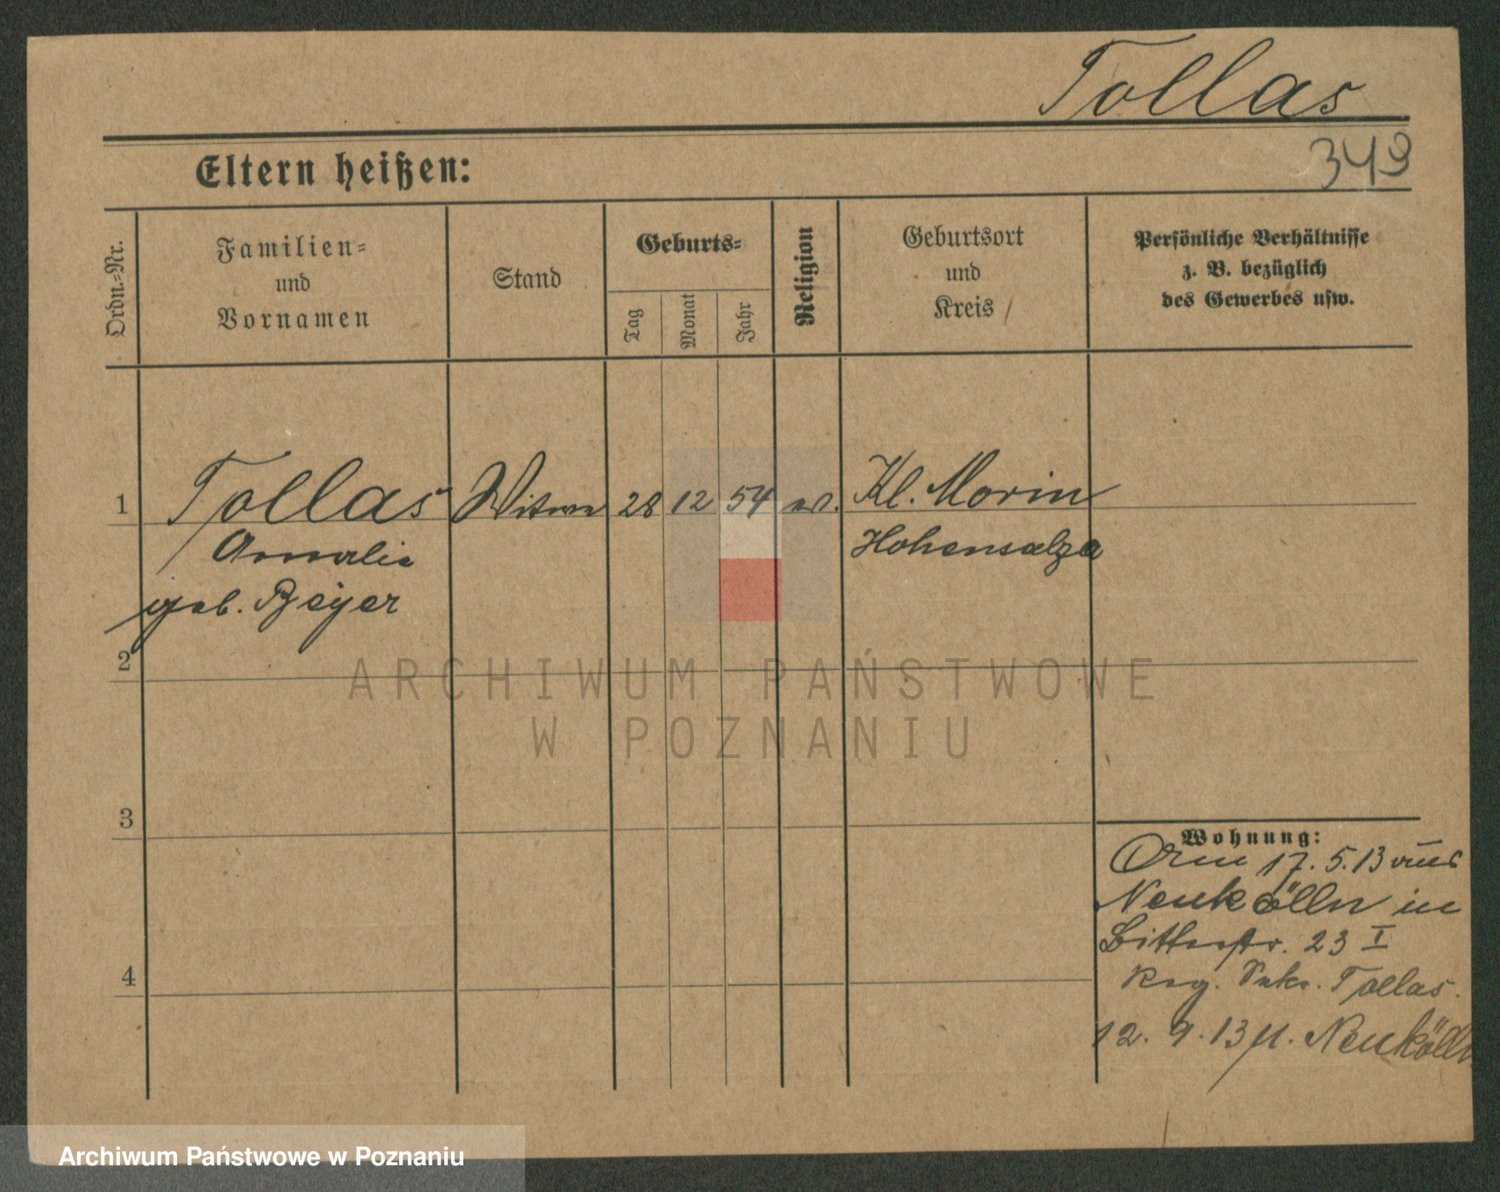 Tollas
349
Eltern heißen:
Ordn.-Nr.
Familien-
und
Vornamen
Stand
Geburts-
Tag
Monat
Jahr
Religion
Geburtsort
und
Kreis
Persönliche Verhältnisse
z. B. bezüglich
des Gewerbes usw.
1 Tollas Witwe 28 12 54 ev. Kl. Morin
Amalie Hohensalza
geb. Beyer
2
3
4
Wohnung:
17. 5. 13 aus
Neukölln in
Bitterstr. 23 I
Reg. Sekr. Tollas.
12. 9. 13 n. Neukölln
ARCHIWUM PAŃSTWOWE
W POZNANIU
Archiwum Państwowe w Poznaniu